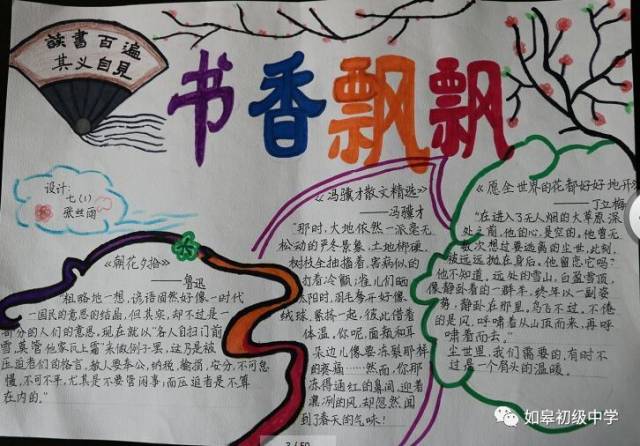 读书百遍
其义自见
书香飘飘
设计:
七(1)
张丝雨
《朝花夕拾》
——鲁迅
"粗略地一想,谚语固然好像一时代
一国民的意思的结晶,但其实,却不过是一
部分的人们的意思。现在就以"各人自扫门前
雪,莫管他家瓦上霜"来做例子罢,这乃是被
压迫者们的格言,教人要奉公,纳税,输捐,安分,不可怠
慢,不可不平,尤其是不要管闲事;而压迫者是不算
在内的。"
《冯骥才散文精选》
——冯骥才
"那时,大地依然一派毫无
松动的严冬景象,土地梆硬,
树枝全抽搐着,害病似的
打着冷颤;雀儿们晒
太阳时,羽毛乍开好像
绒球,紧挤一起,彼此借着
体温。你呢,面颊和耳
朵边儿像要冻裂那样
的疼痛……然而,你那
冻得通红的鼻间,迎着
凛冽的风,却忽然闻
到了春天的气味!
《愿全世界的花都好好地开》
——丁立梅
"在进入了无人烟的大草原深
处之前,他的心,是空的。他曾无
数次想过要逃离的尘世,此刻,
被远远抛在身后。他留恋它吗?
他不知道。远处的雪山,白盔雪顶,
像静卧着的一群羊,终年以一副姿
势,静卧在那里。鸟飞不过。不倦
的是风,呼啸着从山顶而来,再呼
啸着而去。"
尘世里,我们需要的,有时不
过是一个肩头的温暖。
如皋初级中学